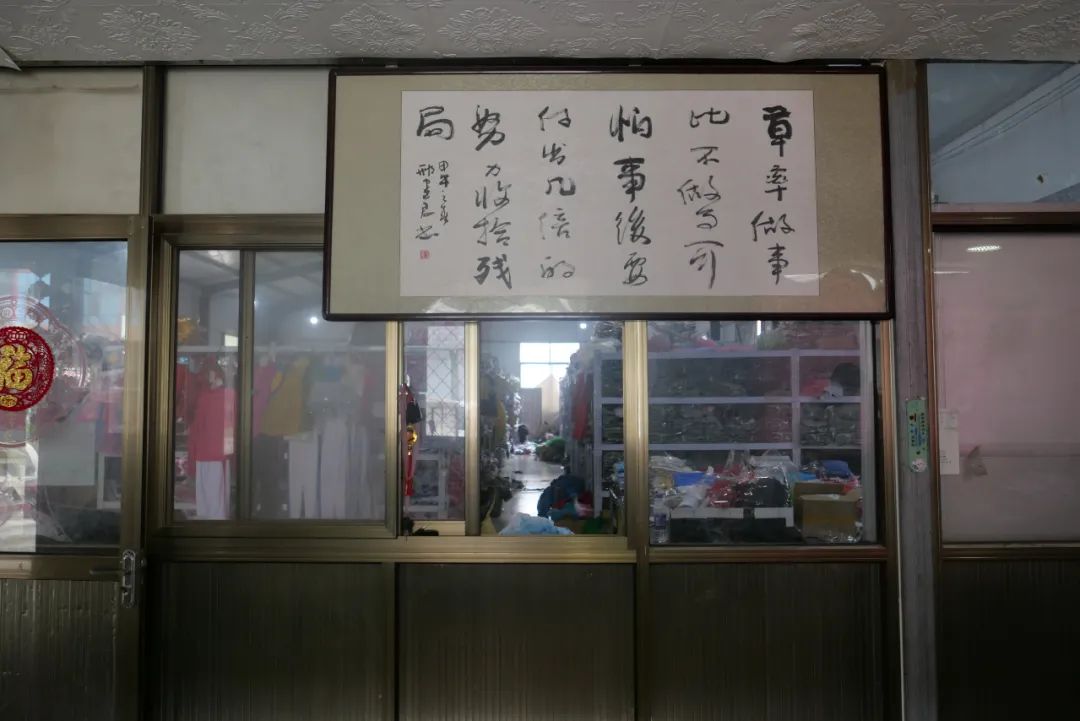 草率做事
比不做更可
怕事後要
付出几倍的
努力收拾残
局
福